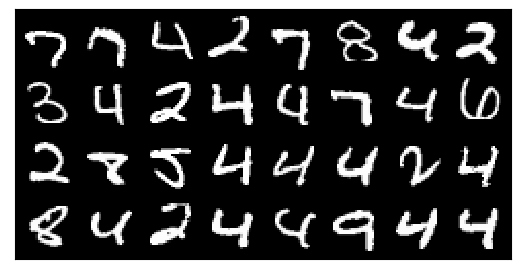 7 7 4 2 7 8 4 2
3 4 2 4 4 7 4 6
2 8 5 4 4 4 2 4
8 4 2 4 4 9 4 4